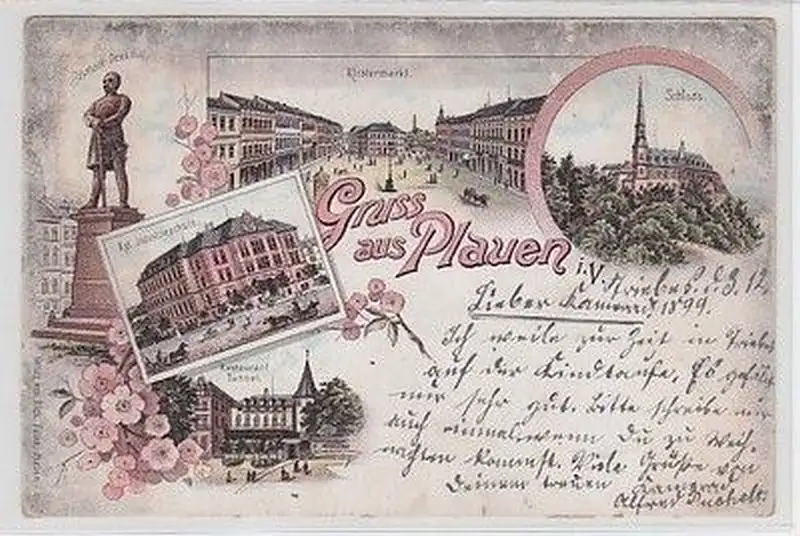 Bismarck-Denkmal
Klostermarkt.
Schloss.
Kgl. Industrieschule
Gruss
aus Plauen
i. V.
Restaurant
Tunnel.
Triebes. d. 3. 12.
Lieber Kamerad! 1899.
Ich weile zur Zeit in Triebes
auf der Kindtaufe. Es gefällt
mir sehr gut. Bitte schreibe mir
auch einmal wenn Du zu Weih-
nachten kommst. Viele Grüße von
Deinem treuen Kamerad
Alfred